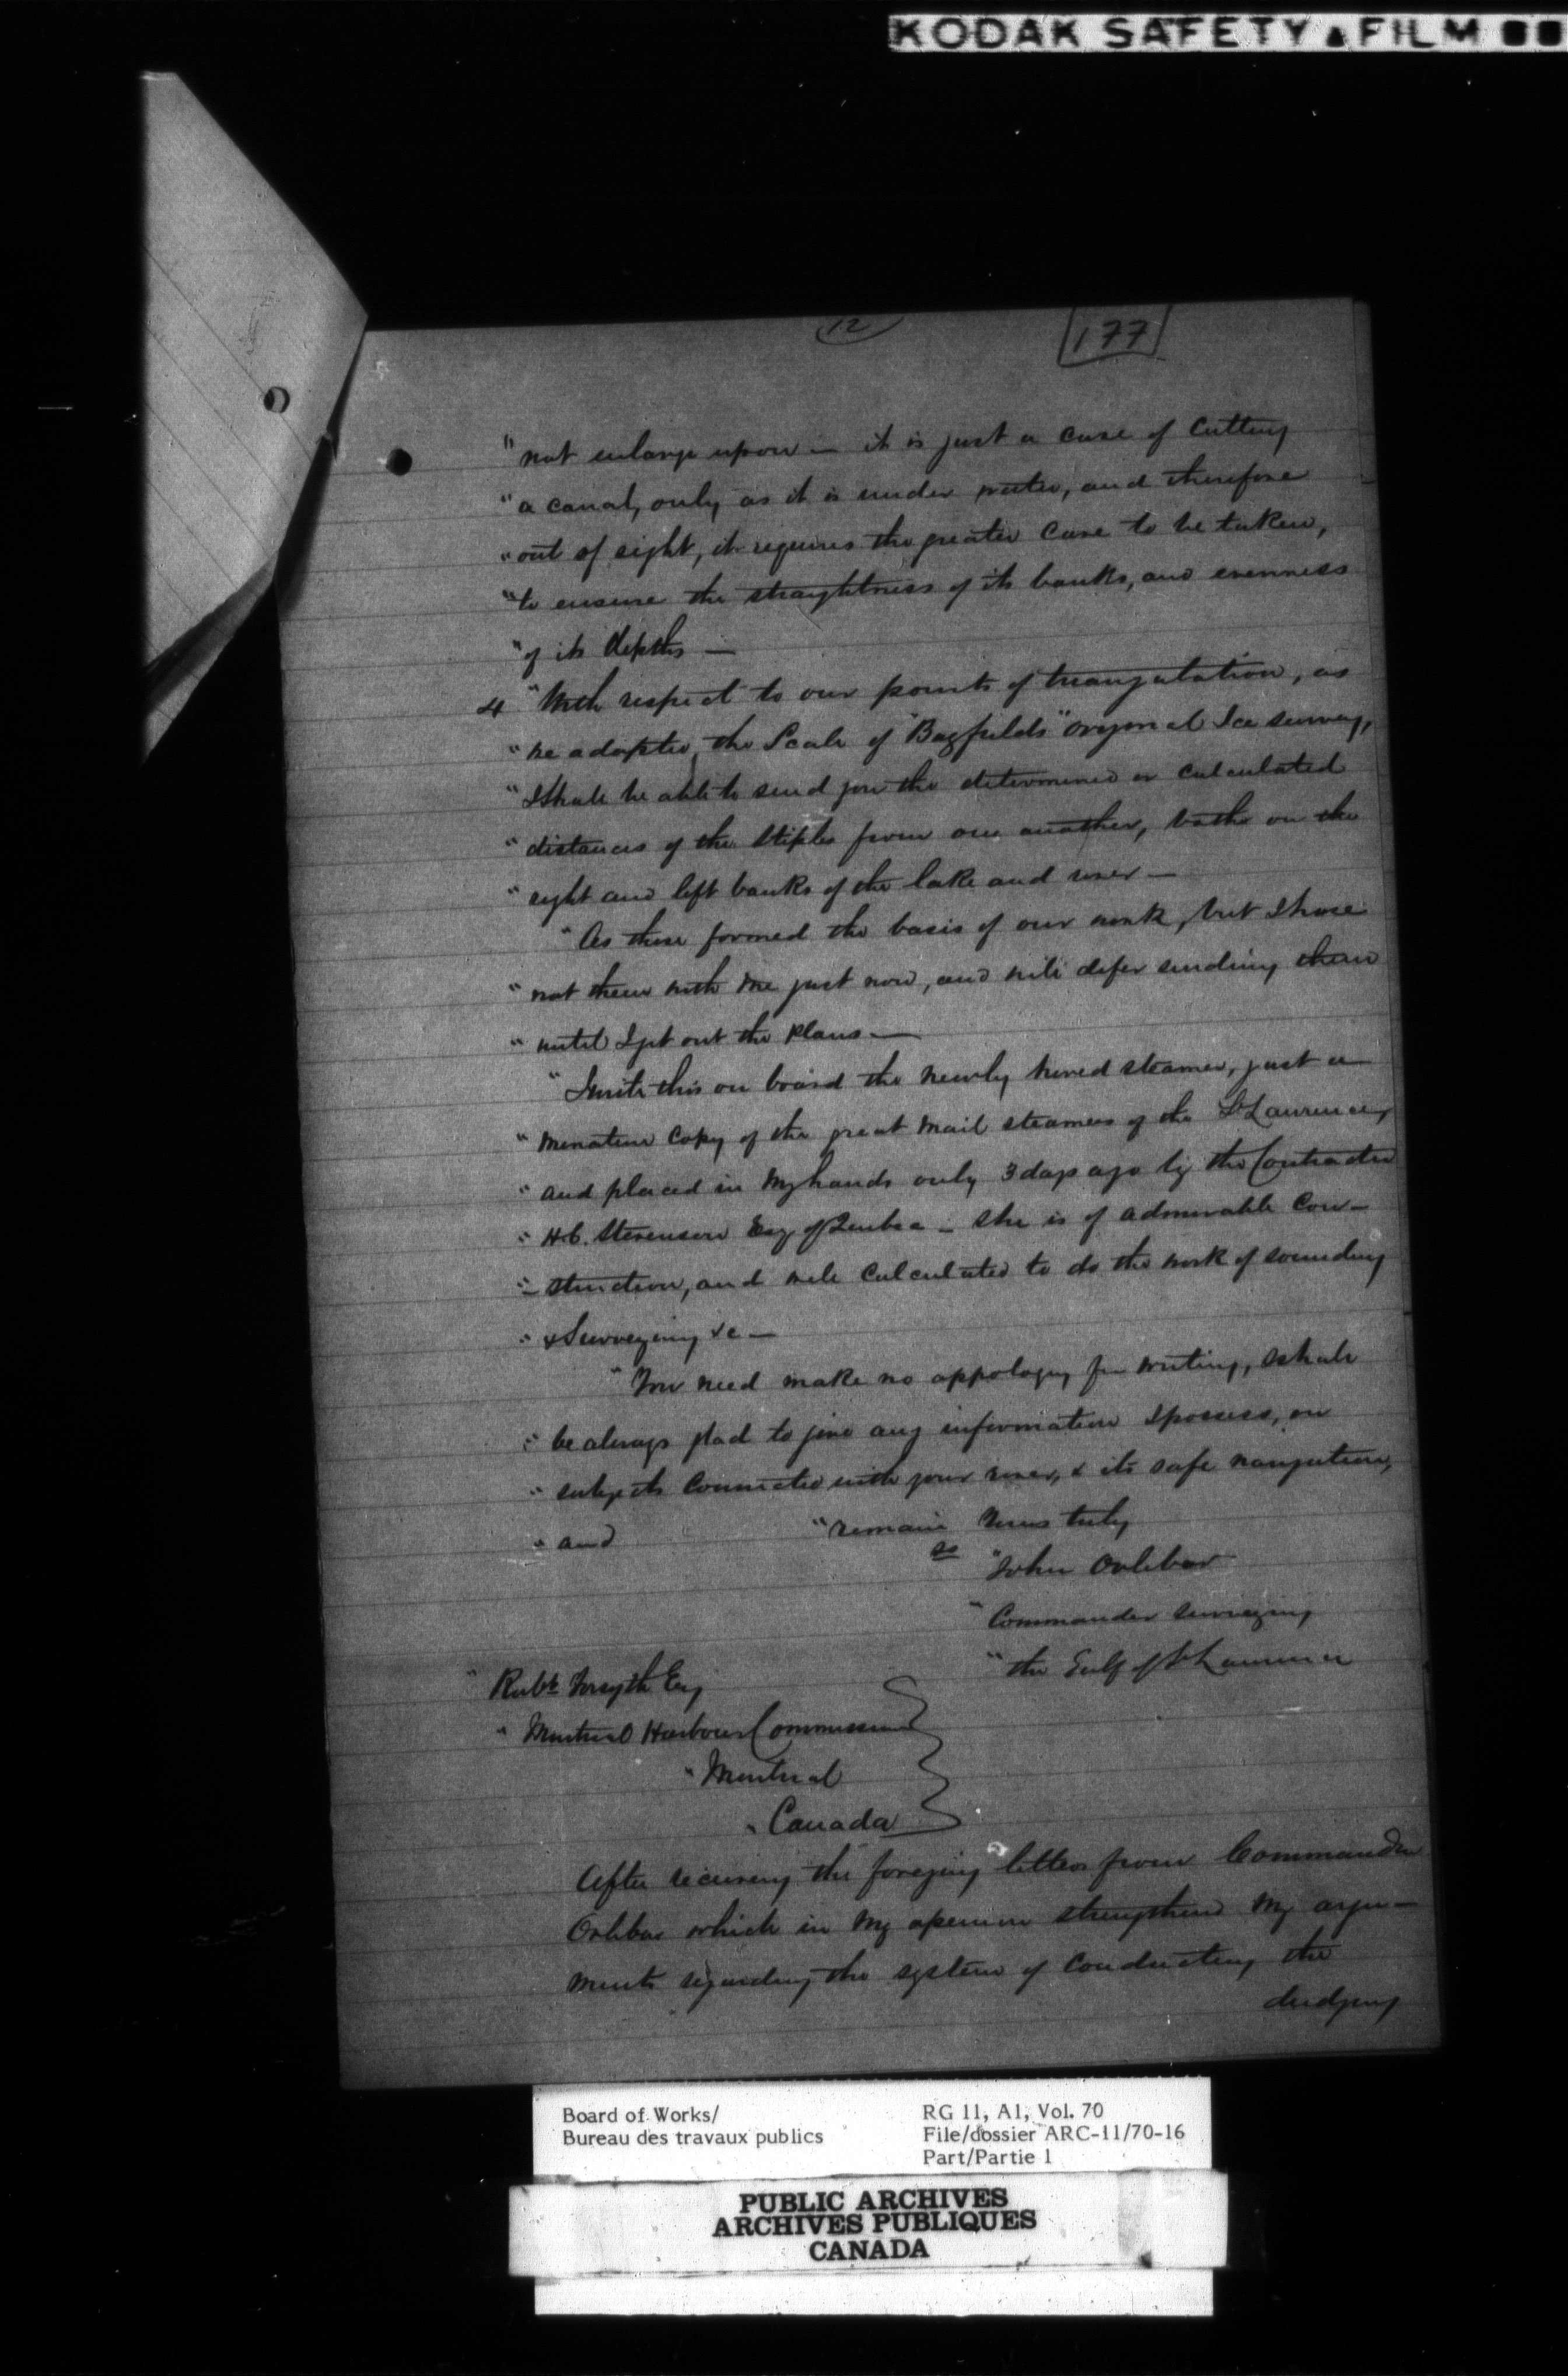 KODAK SAFETY FILM
12
177
"not enlarge upon — it is just a case of cutting
"a canal, only as it is under water, and therefore
"out of sight, it requires the greater care to be taken,
"to ensure the straightness of its banks, and evenness
"of its depths —
4 "With respect to our points of triangulation, as
"we adopted the Scale of "Bayfields" original Ice survey,
"I shall be able to send you the determined or calculated
"distances of the Stiples from one another, both on the
"right and left banks of the lake and river —
"As these formed the basis of our work, but I have
"not them with me just now, and will defer sending them
"until I get out the plans —
"I write this on board the newly hired steamer, just a
"menature copy of the great Mail steamers of the St Laurence,
"and placed in my hands only 3 days ago by the Contractor
"H.C. Stevenson Esq of Quebec — she is of admirable con-
"-struction, and well calculated to do the work of sounding
"& Surveying &c —
"You need make no appology for writing, I shall
"be always glad to give any information I possess, on
"subjects connected with your river, & its safe navigation,
"and "remain Yours truly
"John Orlebar
"Commander Surveying
"the Gulf of St Laurence
"Robt Forsyth Esq
"Montreal Harbour Commission
"Montreal
"Canada
After receiving the foregoing letter from Commander
Orlebar which in my openion strengthend my argu-
ments regarding the system of conducting the
dredging
Board of Works/
Bureau des travaux publics
RG 11, A1, Vol. 70
File/dossier ARC-11/70-16
Part/Partie 1
PUBLIC ARCHIVES
ARCHIVES PUBLIQUES
CANADA